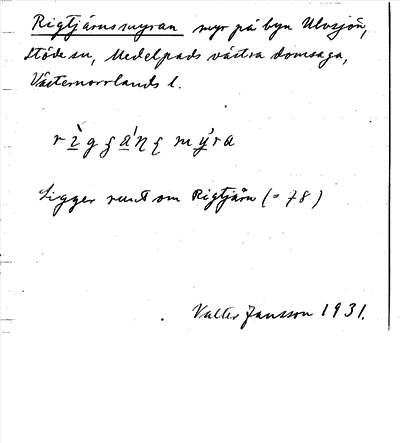 Rigtjärnsmyran myr på byn Ulvsjön,
Stöde sn, Medelpads västra domsaga,
Västernorrlands l.
Ligger runt om Rigtjärn (= 78)
Valter Jansson 1931.